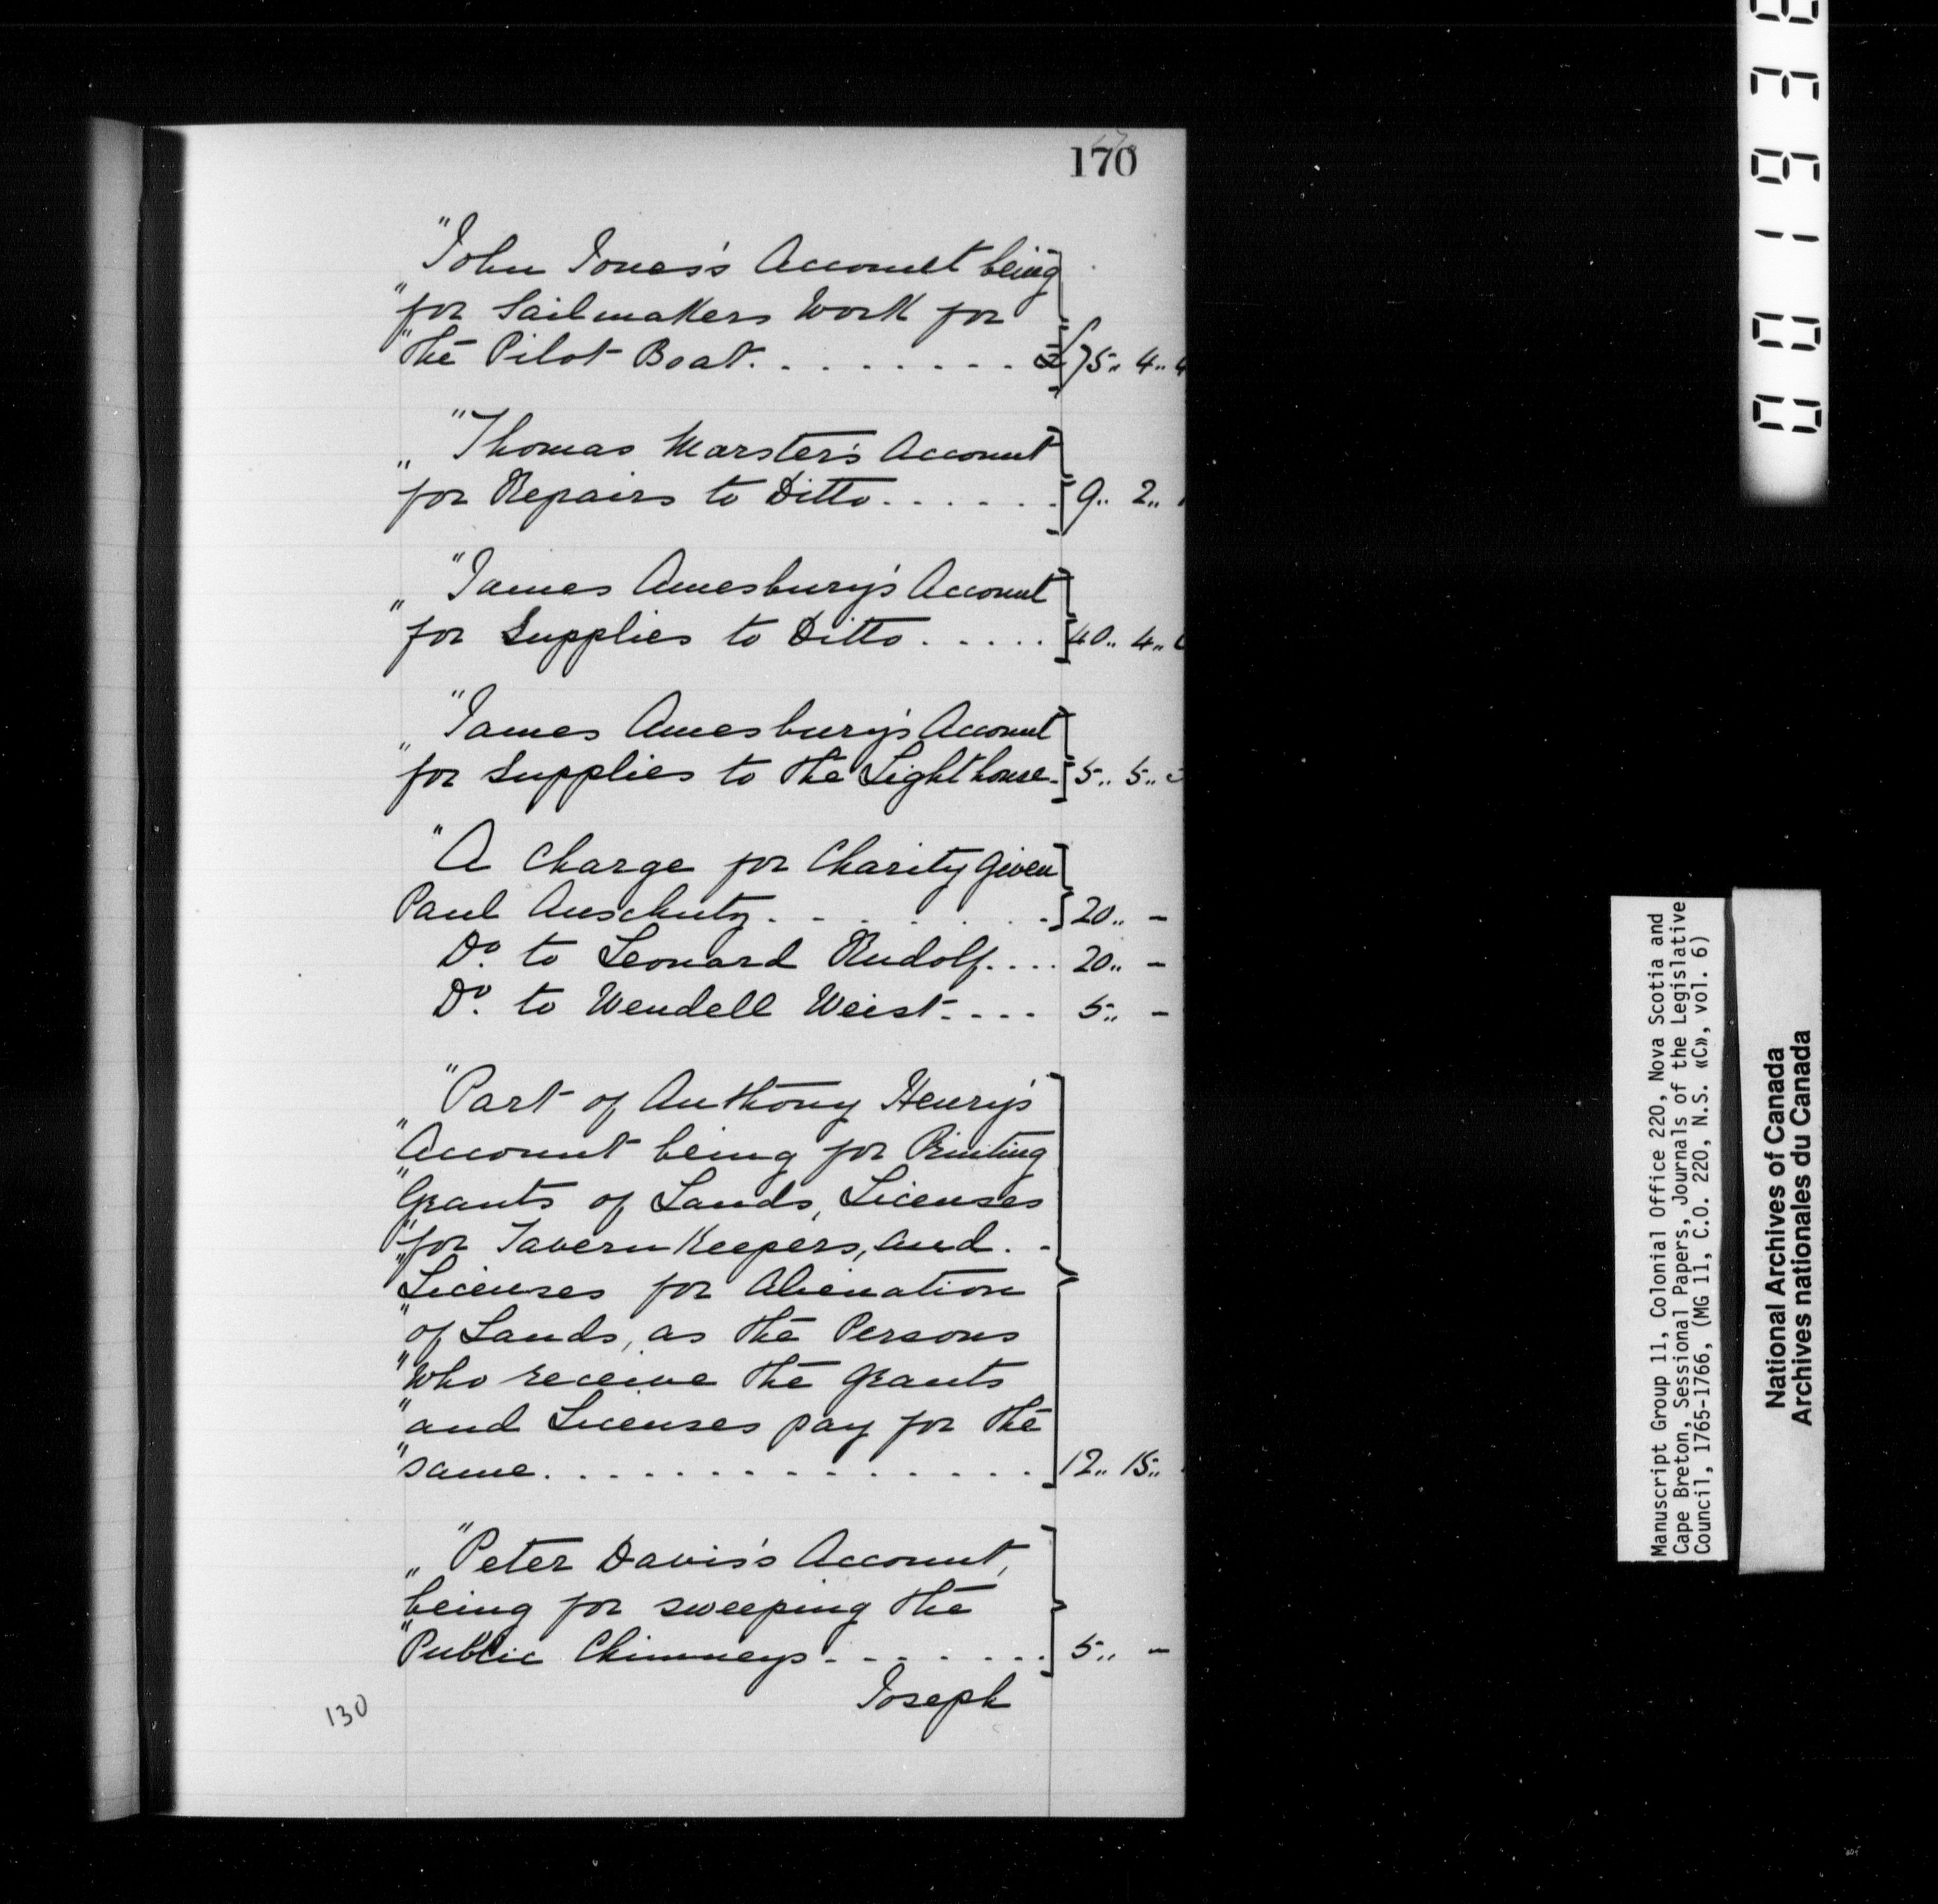 170
"John Jones's Account being
"for Sailmakers Work for
"the Pilot Boat. . . . . . . . . £ 75 .. 4 .. 4
"Thomas Marster's Account
„ for Repairs to Ditto . . . . . . 9 .. 2 ..
"James Amesbury's Account
„ for Supplies to Ditto . . . . . 40 .. 4 ..
"James Amesbury's Account
„ for Supplies to the Lighthouse. 5 .. 5 ..
"A Charge for Charity given
Paul Anschutz . . . . . . . . 20 .. -
Do. to Leonard Rudolf . . . . 20 .. -
Do. to Wendell Weist . . . . 5 .. -
"Part of Anthony Henry's
"Account being for Printing
"Grants of Lands, Licenses
"for Tavern Keepers, and . -
"Licenses for Alienation
"of Lands, as the Persons
"who receive the Grants
"and Licenses pay for the
"same . . . . . . . . . . . . . . . 12 .. 15 ..
"Peter Davis's Account,
„ being for sweeping the
"Public Chimneys . . . . . . . . 5 .. -
Joseph
130
Manuscript Group 11, Colonial Office 220, Nova Scotia and
Cape Breton, Sessional Papers, Journals of the Legislative
Council, 1765-1766, (MG 11, C.O. 220, N.S. «C», vol. 6)
National Archives of Canada
Archives nationales du Canada